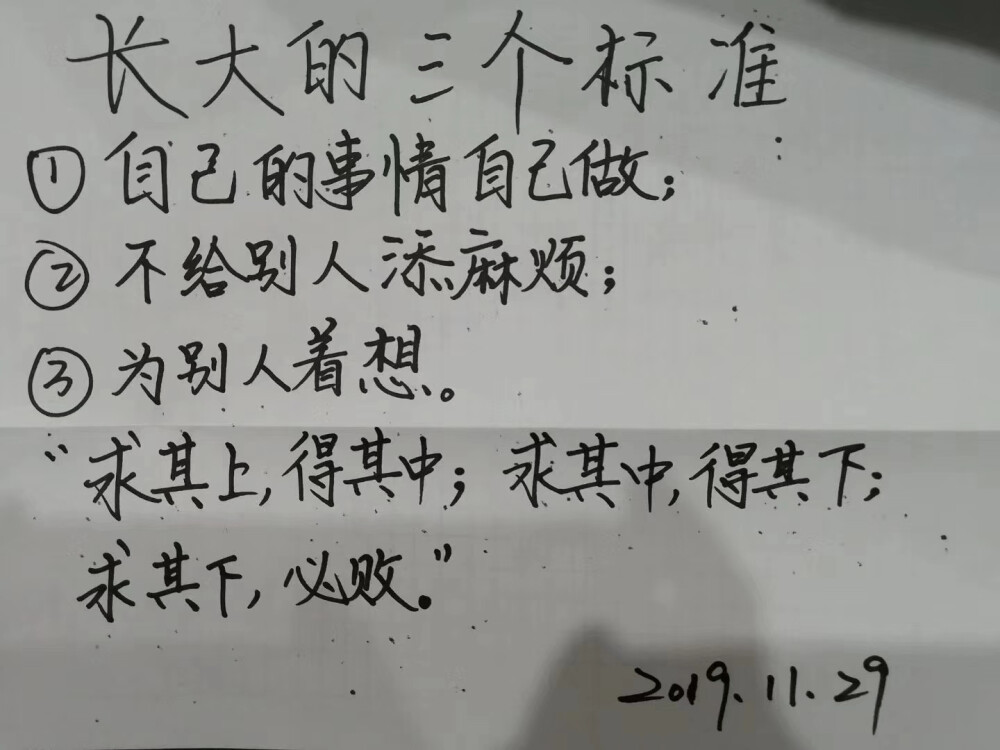 长大的三个标准
①自己的事情自己做；
②不给别人添麻烦；
③为别人着想。
“求其上，得其中；求其中，得其下；
求其下，必败。”
2019.11.29